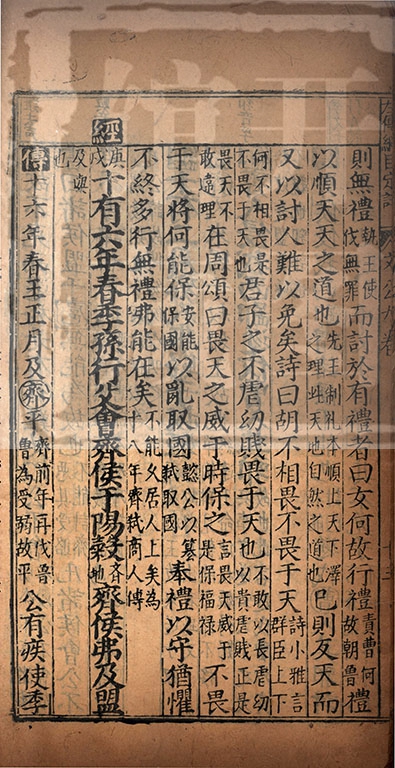 則無禮執王使伐無罪而討於有禮者曰女何故行禮責曹何故朝魯禮
以順天天之道也先王制禮本順上天下澤之理此天也自然之道也己則反天而
又以討人難以免矣詩曰胡不相畏不畏于天詩小雅言群臣上下
何不相畏是不畏于天也君子之不虐幼賤畏于天也不敢以長虐幼以貴虐賤正是
畏天不敢違理在周頌曰畏天之威于時保之言畏天威于是保福祿不畏
于天將何能保安能保國以亂取國懿公以篡弒取國奉禮以守猶懼
不終多行無禮弗能在矣不能久居人上矣為十八年齊弒商人傳
經庚戌十有六年春季孫行父會齊侯于陽穀齊地齊侯弗及盟
及與也
傳十六年春王正月及齊平齊前年再伐魯魯為受弱故平公有疾使季